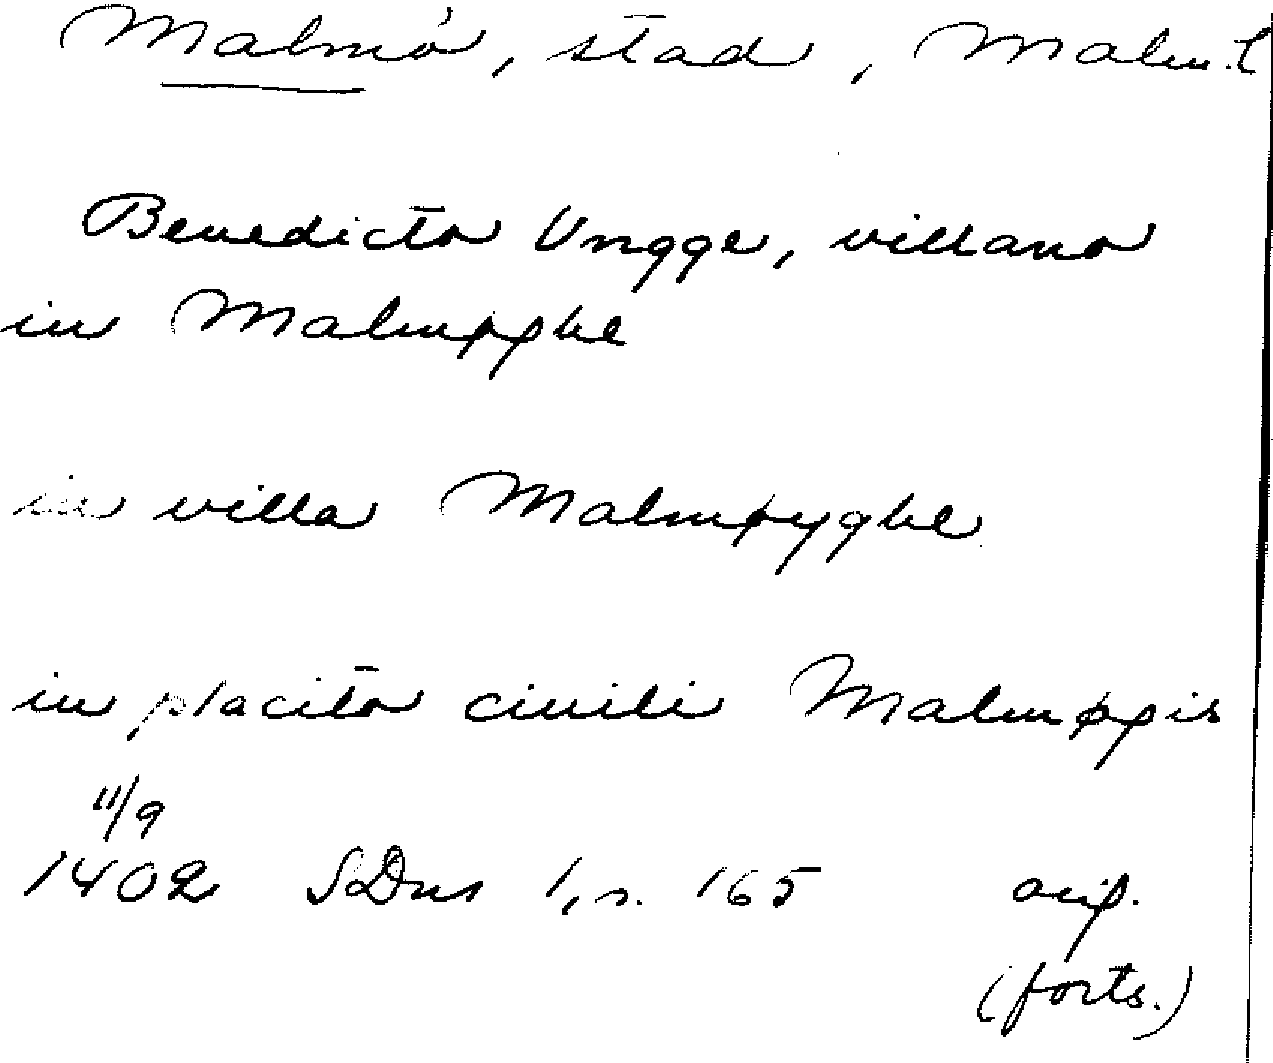 Malmö, stad, Malm.l
Benedicto Vngge, villano
in Malmøghe
in villa Malmøyghe
in placito ciuili Malmøgis
11/9
1402 SDns 1, s. 165 orig.
(forts.)